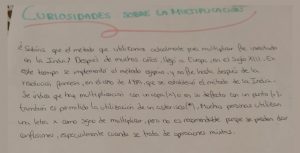 CURIOSIDADES SOBRE LA MULTIPLICACIÓN
¿Sabías que el método que utilizamos actualmente para multiplicar fue inventado
en la India? Después de muchos años, llegó a Europa, en el Siglo XIII. En
este tiempo se implementó el método egipcio, y no fue hasta después de la
revolución francesa, en el año de 1789, que se estableció el método de la India.
Se indica que hay multiplicación con aspa (x) o en su defecto con un punto (·),
también es permitido la utilización de un asterisco (*). Muchas personas utilizan
una letra x como signo de multiplicar, pero no es recomendable porque se pueden dar
confusiones, especialmente cuando se trata de operaciones mixtas.